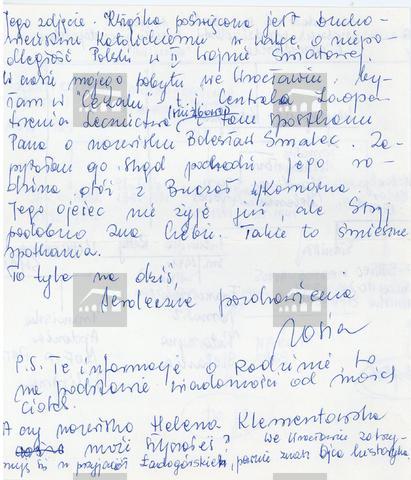 jego zdjęcie. Książka poświęcona jest Ducho-
wieństwu Katolickiemu w walce o niepo-
dległość Polski w II Wojnie Światowej.
W czasie mojego pobytu we Wrocławiu, by-
łam w "Cezalu", t.j. Centrala Zaopa-
trzenia Lecznictwa i tam spotkałam
Pana o nazwisku Bolesław Smalec. Za-
pytałam go skąd pochodzi jego ro-
dzina, otóż z
Jego ojciec nie żyje już, ale Stryj
podobno zna Ciebie. Takie to śmieszne
spotkania.
To tyle na dziś,
Serdeczne pozdrowienia
Zosia
P.S. Te informacje o Rodzinie, to
na podstawie wiadomości od moich
Ciotek.
A czy nazwisko Helena Klementowska
może być we Wrocławiu zatrzy-
muję się u przyjaciół Zadogórskich, pewnie znasz Ojca